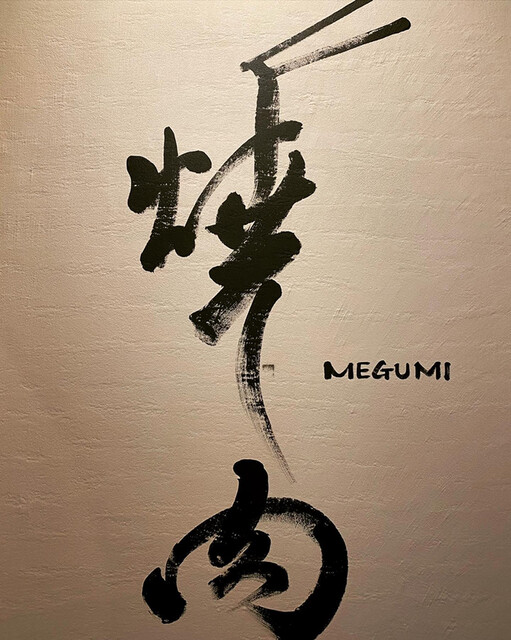 焼肉
MEGUMI